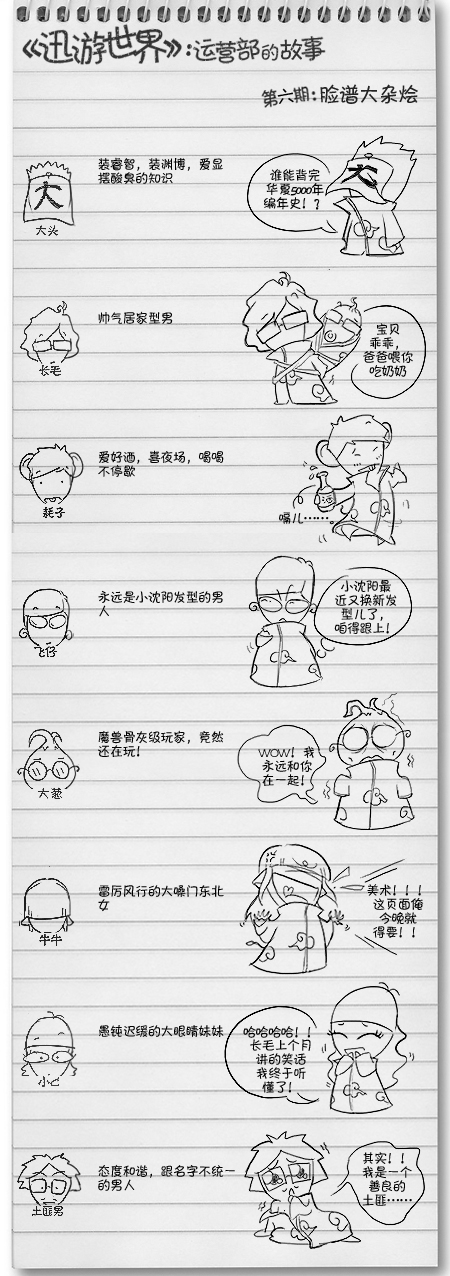 《迅游世界》:运营部的故事
第六期:脸谱大杂烩
大
大头
装睿智，装渊博，爱显
摆酸臭的知识
谁能背完
华夏5000年
编年史！？
大
长毛
帅气居家型男
宝贝
乖乖，
爸爸喂你
吃奶奶
耗子
爱好酒，喜夜场，喝喝
不停歇
嗝儿……
飞仔
永远是小沈阳发型的男
人
小沈阳最
近又换新发
型儿了，
咱得跟上！
大葱
魔兽骨灰级玩家，竟然
还在玩！
WOW！我
永远和你
在一起！
牛牛
雷厉风行的大嗓门东北
女
美术！！！
这页面俺
今晚就
得要！！
愚钝迟缓的大眼睛妹妹
哈哈哈哈！！
长毛上个月
讲的笑话
我终于听
懂了！
土匪男
态度和谐，跟名字不统一
的男人
其实！！
我是一个
善良的
土匪……